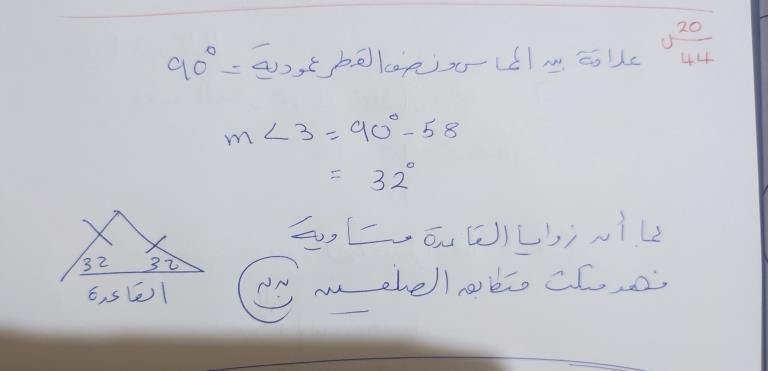 س 20/44
علاقة بين المماس ونصف القطر عمودية = 90°
m<3 = 90° - 58
= 32°
بما أن زوايا القاعدة متساوية
فهو مثلث متطابق الضلعين
32 32
القاعدة